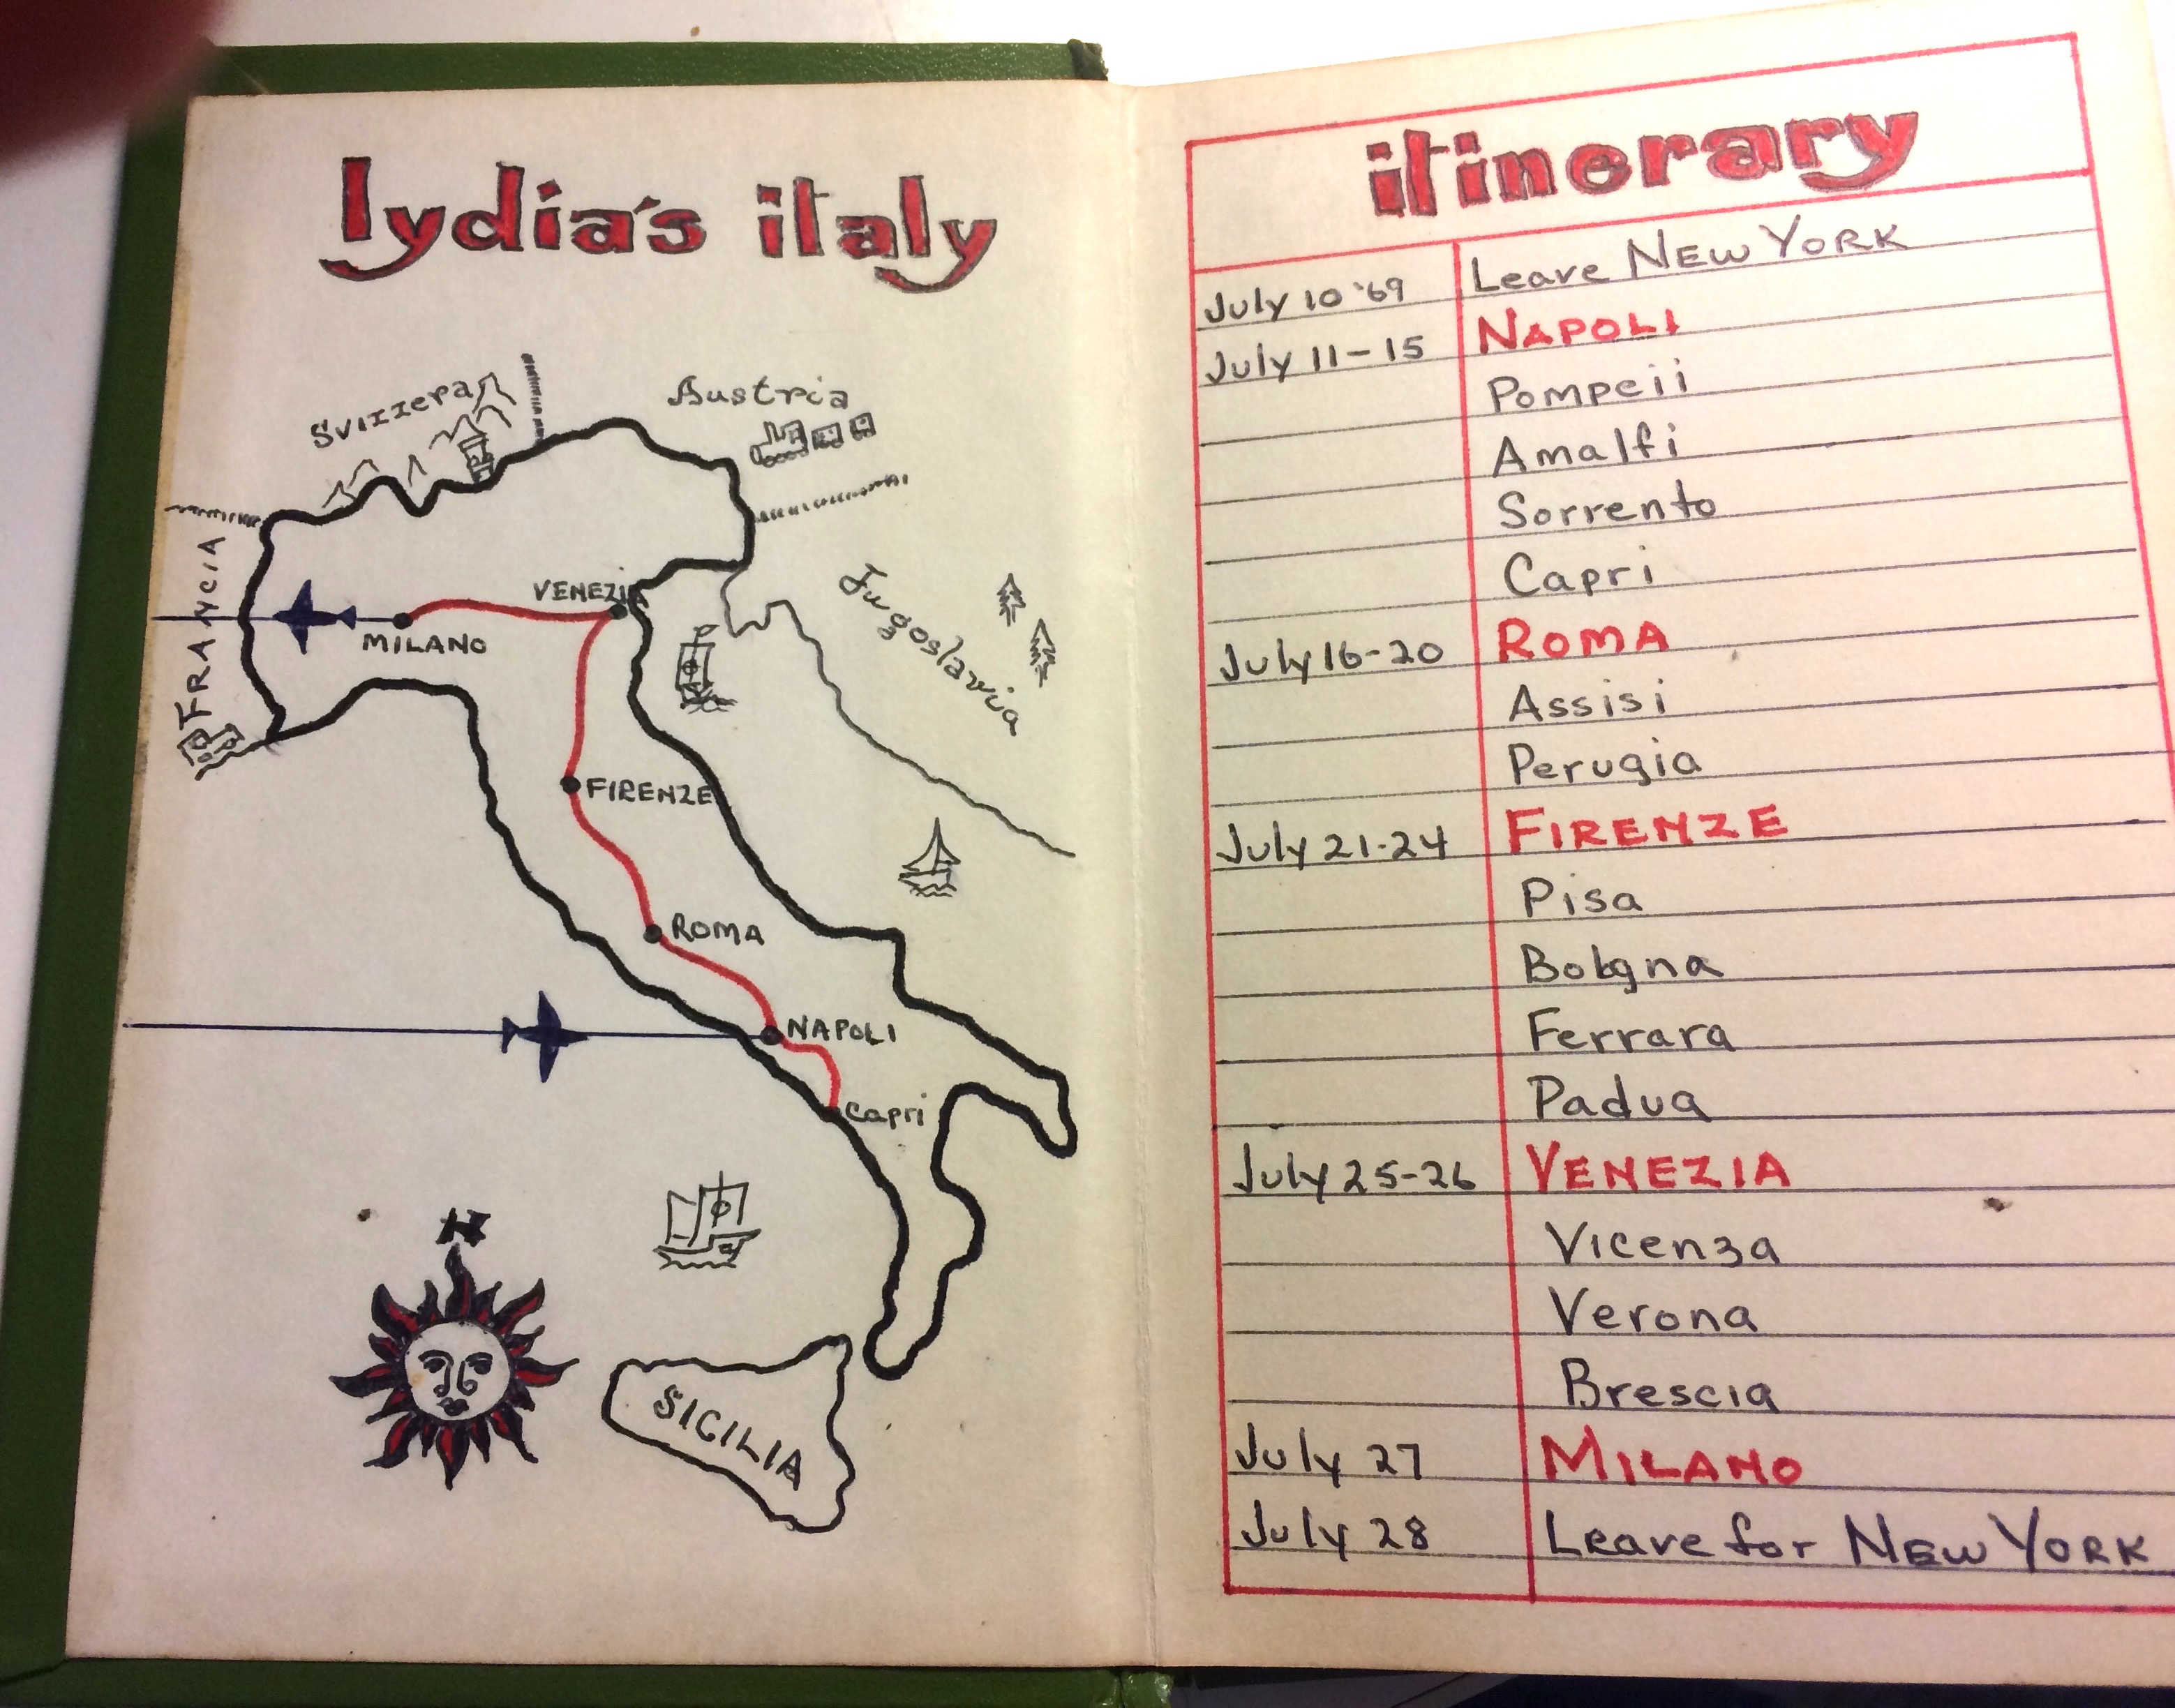 lydia's italy
Svizzera
Austria
FRANCIA
Jugoslavia
VENEZIA
MILANO
FIRENZE
ROMA
NAPOLI
Capri
N
SICILIA
itinerary
July 10 '69 Leave NEW YORK
July 11-15 NAPOLI
Pompeii
Amalfi
Sorrento
Capri
July 16-20 ROMA
Assisi
Perugia
July 21-24 FIRENZE
Pisa
Bologna
Ferrara
Padua
July 25-26 VENEZIA
Vicenza
Verona
Brescia
July 27 MILANO
July 28 Leave for NEW YORK